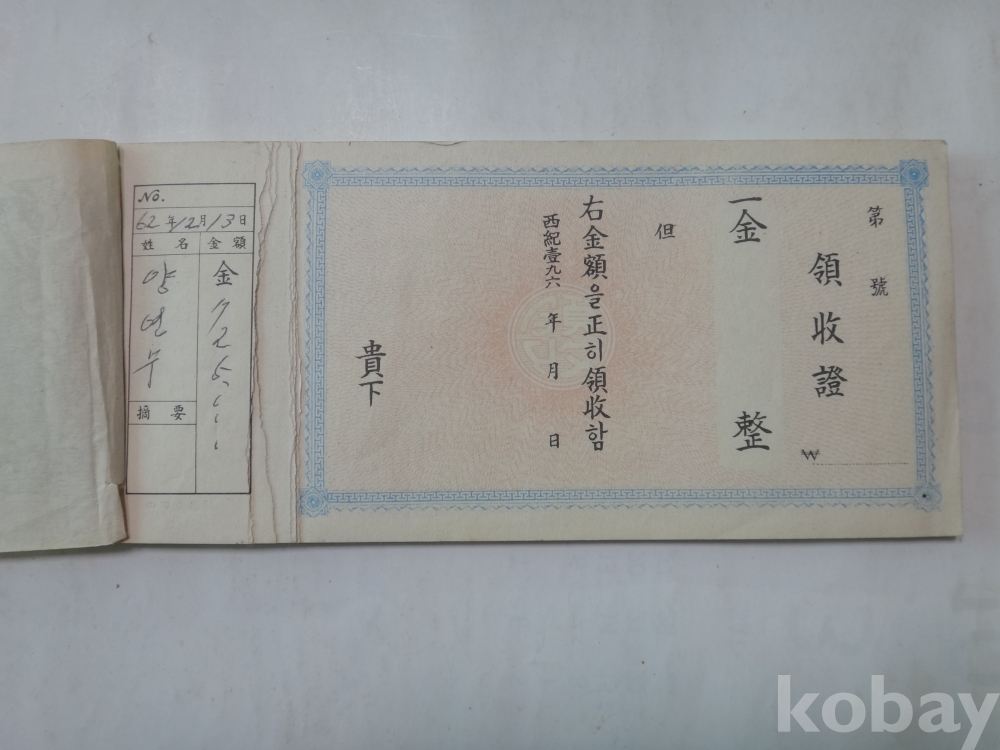 No.
62年12月13日
姓名 金額
양연무
金725
摘要
第 號
領收證
₩
一金 整
但
右金額을正히領收함
西紀壹九六 年 月 日
貴下
kobay